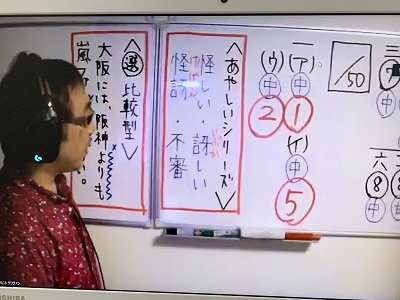 三
中
六
8
8
中
/50
一
(ア)
中
1
(イ)
中
5
(ウ)
中
2
<あやしいシリーズ>
怪しい・訝しい
怪訝・不審
<選 比較型>
大阪には、阪神よりも
嵐ファ
い。